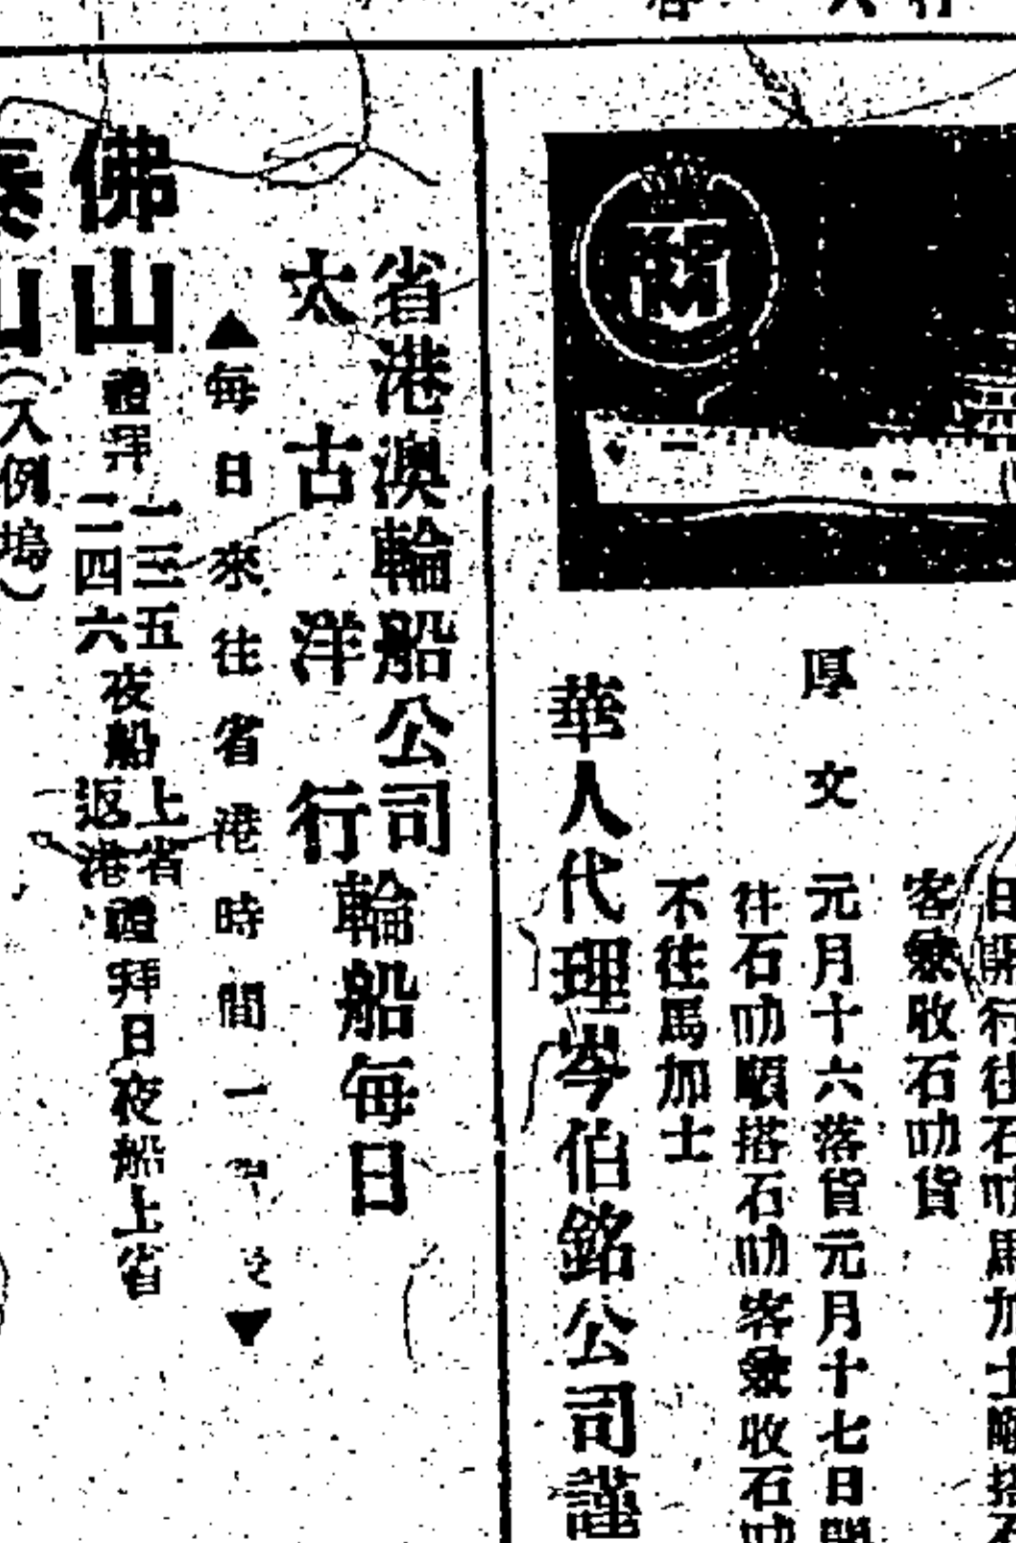 日開行往石叻馬加士順搭石
客兼收石叻貨
厚文 元月十六落貨元月十七日開
往石叻順搭石叻客兼收石叻
不往馬加士
華人代理岑伯銘公司謹
省港澳輪船公司
太古洋行
輪船每日
▲每日來往省港時間一
佛山 禮拜 一三五 二四六 夜船 上省 返港 禮拜日夜船上省
泰山(入例塢)